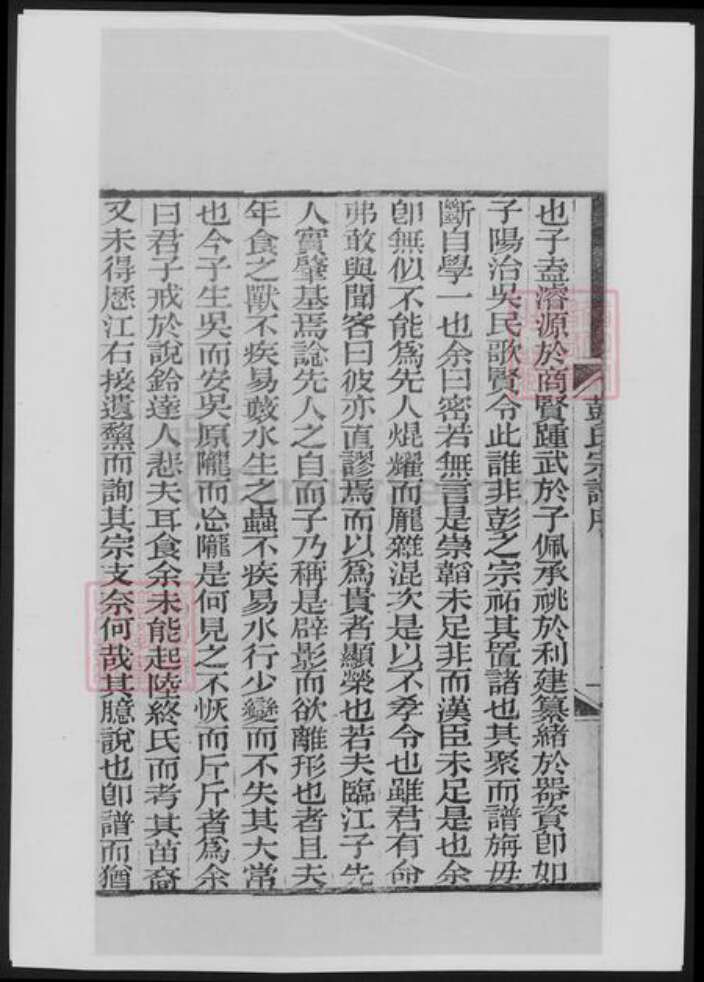 彭氏宗譜序
一
也子盍濬源於商賢踵武於子佩承祧於利建纂緒於器資卽如
子陽治吳民歌賢令此誰非彭之宗祐其置諸也其聚而譜旃毋
斷自學一也余曰密若無言是崇韜未足非而漢臣未足是也余
卽無似不能爲先人焜耀而龎雜混次是以不孝令也雖君有命
弗敢與聞客曰彼亦直謬焉而以爲貴者顯榮也若夫臨江子先
人實肇基焉諗先人之自而子乃稱是辟影而欲離形也者且夫
年食之獸不疾易藪水生之蟲不疾易水行少變而不失其大常
也今子生吳而安吳原隴而忘隴是何見之不恢而斤斤者爲余
曰君子戒於說鈴達人悲夫耳食余未能起陸終氏而考其苗裔
又未得歷江右接遺黎而詢其宗支奈何哉其臆說也卽譜而猶